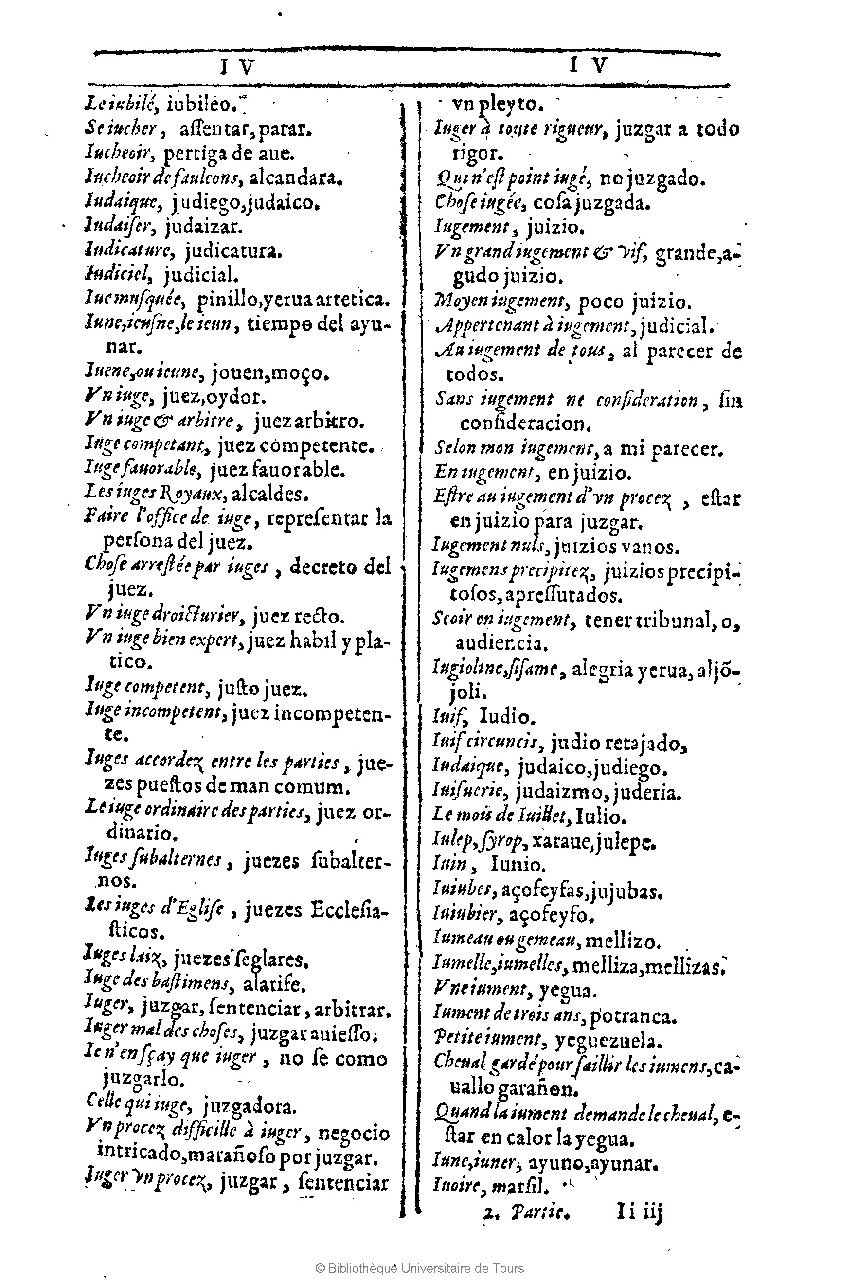 I V
I V
Le iubilé, iubileo.
Se iucher, aſſentar, parar.
Iucheoir, pertiga de aue.
Iucheoir de faulcons, alcandara.
Iudaique, judiego, judaico.
Iudaiſer, judaizar.
Iudicature, judicatura.
Iudiciel, judicial.
Iue muſquée, pinillo, yerua artetica.
Iune, ieuſne, le ieun, tiempo del ayu-
nar.
Iuene, ou ieune, jouen, moço.
Vn iuge, juez, oydor.
Vn iuge & arbitre, juez arbitro.
Iuge competant, juez competente.
Iuge fauorable, juez fauorable.
Les iuges Royaux, alcaldes.
Faire l'office de iuge, repreſentar la
perſona del juez.
Choſe arreſtée par iuges, decreto del
juez.
Vn iuge droicturier, juez recto.
Vn iuge bien expert, juez habil y pla-
tico.
Iuge competent, juſto juez.
Iuge incompetent, juez incompeten-
te.
Iuges accordez entre les parties, jue-
zes pueſtos de man comum.
Le iuge ordinaire des parties, juez or-
dinario.
Iuges ſubalternes, juezes ſubalter-
nos.
Les iuges d'Egliſe, juezes Eccleſia-
ſticos.
Iuges laiz, juezes ſeglares.
Iuge des baſtimens, alarife.
Iuger, juzgar, ſentenciar, arbitrar.
Iuger mal des choſes, juzgar auieſſo.
Ie n'en ſçay que iuger, no ſe como
juzgarlo.
Celle qui iuge, juzgadora.
Vn procez difficille à iuger, negocio
intricado, marañoſo por juzgar.
Iuger vn procez, juzgar, ſentenciar
vn pleyto.
Iuger à toute rigueur, juzgar a todo
rigor.
Qui n'eſt point iugé, no juzgado.
Choſe iugée, coſa juzgada.
Iugement, juizio.
Vn grand iugement & vif, grande, a-
gudo juizio.
Moyen iugement, poco juizio.
Appertenant à iugement, judicial.
Au iugement de tous, al parecer de
todos.
Sans iugement ne conſideration, ſin
conſideracion.
Selon mon iugement, a mi parecer.
En iugement, en juizio.
Eſtre au iugement d'vn procez, eſtar
en juizio para juzgar.
Iugement nuls, juizios vanos.
Iugemens precipitez, juizios precipi-
toſos, apreſſutados.
Seoir en iugement, tener tribunal, o,
audiencia.
Iugioline, ſiſame, alegria yerua, aljõ-
joli.
Iuif, Iudio.
Iuif circuncis, judio retajado,
Iudaique, judaico, judiego.
Iuiſuerie, judaizmo, juderia.
Le mois de Iuillet, Iulio.
Iulep, ſyrop, xaraue, julepe.
Iuin, Iunio.
Iuiubes, açofeyfas, jujubas.
Iuiubier, açofeyfo.
Iumeau ou gemeau, mellizo.
Iumelle, iumelles, melliza, mellizas.
Vne iument, yegua.
Iument de trois ans, potranca.
Petite iument, yeguezuela.
Cheual gardé pour ſaillir les iumens, ca-
uallo garañon.
Quand la iument demande le cheual, e-
ſtar en calor la yegua.
Iune, iuner, ayuno, ayunar.
Iuoire, marfil.
2. Partie. Ii iij
© Bibliothèque Universitaire de Tours